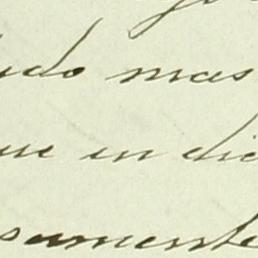 udo mas
ue en dic
samente